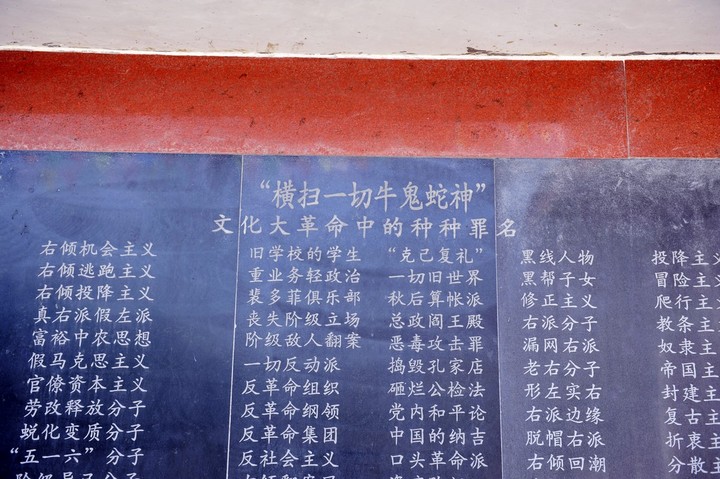 “横扫一切牛鬼蛇神”
文化大革命中的种种罪名
右倾机会主义
右倾逃跑主义
右倾投降主义
真右派假左派
富裕中农思想
假马克思主义
官僚资本主义
劳改释放分子
蜕化变质分子
“五一六”分子
旧学校的学生
重业务轻政治
裴多菲俱乐部
丧失阶级立场
阶级敌人翻案
一切反动派
反革命组织
反革命纲领
反革命集团
反社会主义
“克己复礼”
一切旧世界
秋后算帐派
总政阎王殿
恶毒攻击罪
捣毁孔家店
砸烂公检法
党内和平论
中国的纳吉
口头革命派
黑线人物
黑帮子女
修正主义
右派分子
漏网右派
老右分子
形左实右
右派边缘
脱帽右派
右倾回潮
投降主义
冒险主
爬行主
教条主
奴隶主
帝国主
封建主
复古主
折衷主
分散主